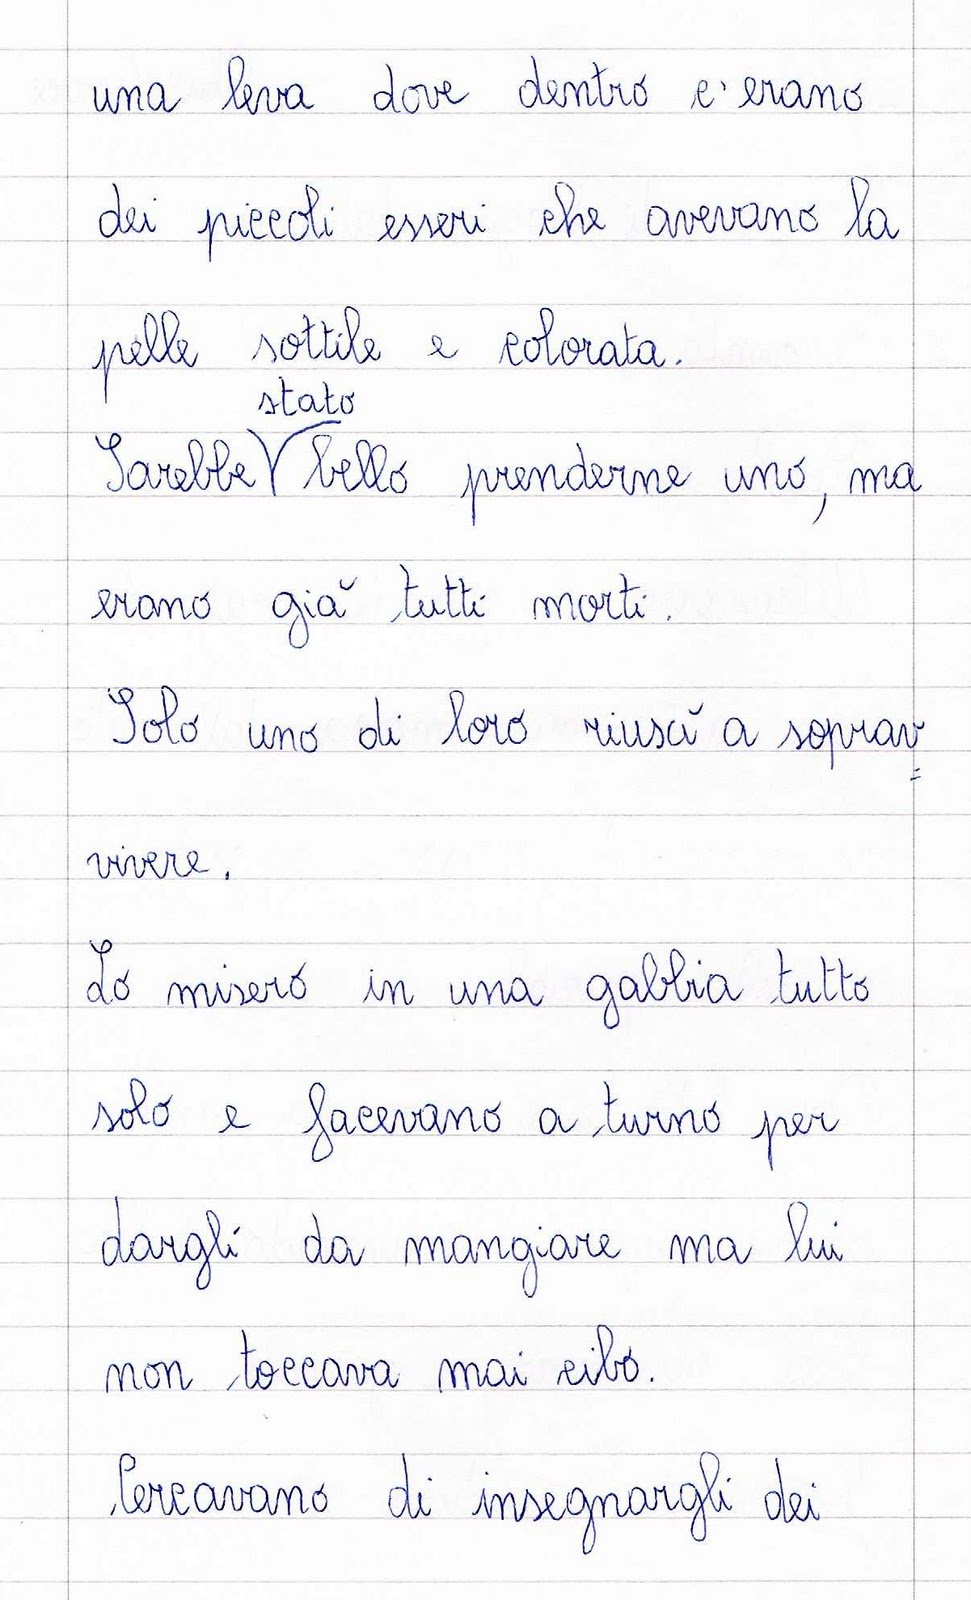 una leva dove dentro c'erano
dei piccoli esseri che avevano la
pelle sottile e colorata.
stato
Sarebbe bello prenderne uno, ma
erano già tutti morti.
Solo uno di loro riuscì a soprav=
vivere.
Lo misero in una gabbia tutto
solo e facevano a turno per
dargli da mangiare ma lui
non toccava mai cibo.
Cercavano di insegnargli dei